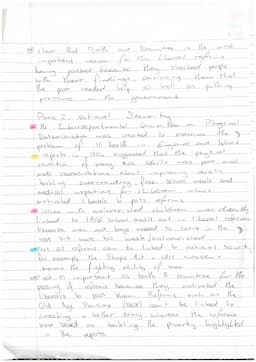 clear that Booth and Rowntree is the most
important reason for the liberal reforms
being passed because they shocked people
with their findings, convincing them that
the poor needed help as well as putting
pressure on the government.
Para 2: National Security
The Interdepartmental Committee on Physical
Deterioration was created to examine the
problem of ill health in England and Wales
reports in 1904 suggested that the physical
condition of many adults was poor and
made recommendations about improving diets
tackling overcrowding, free school meals and
medical inspections for children which
motivated liberals to pass reforms
issues with malnourished children was
linked to 1906 school meals act in liberal reforms
because men and boys needed to serve in the
but were too weak/malnourished
not all reforms can be linked to national security
for example the Shops Act - 1911
improve the fighting ability of men
not as important as Booth & Rowntree for the
passing of reforms because they motivated the
liberals to pass them. Reforms such as the
Old Age Pensions (1908) can't be linked to
creating a better army whereas the reforms
were based on tackling the poverty highlighted
in the reports